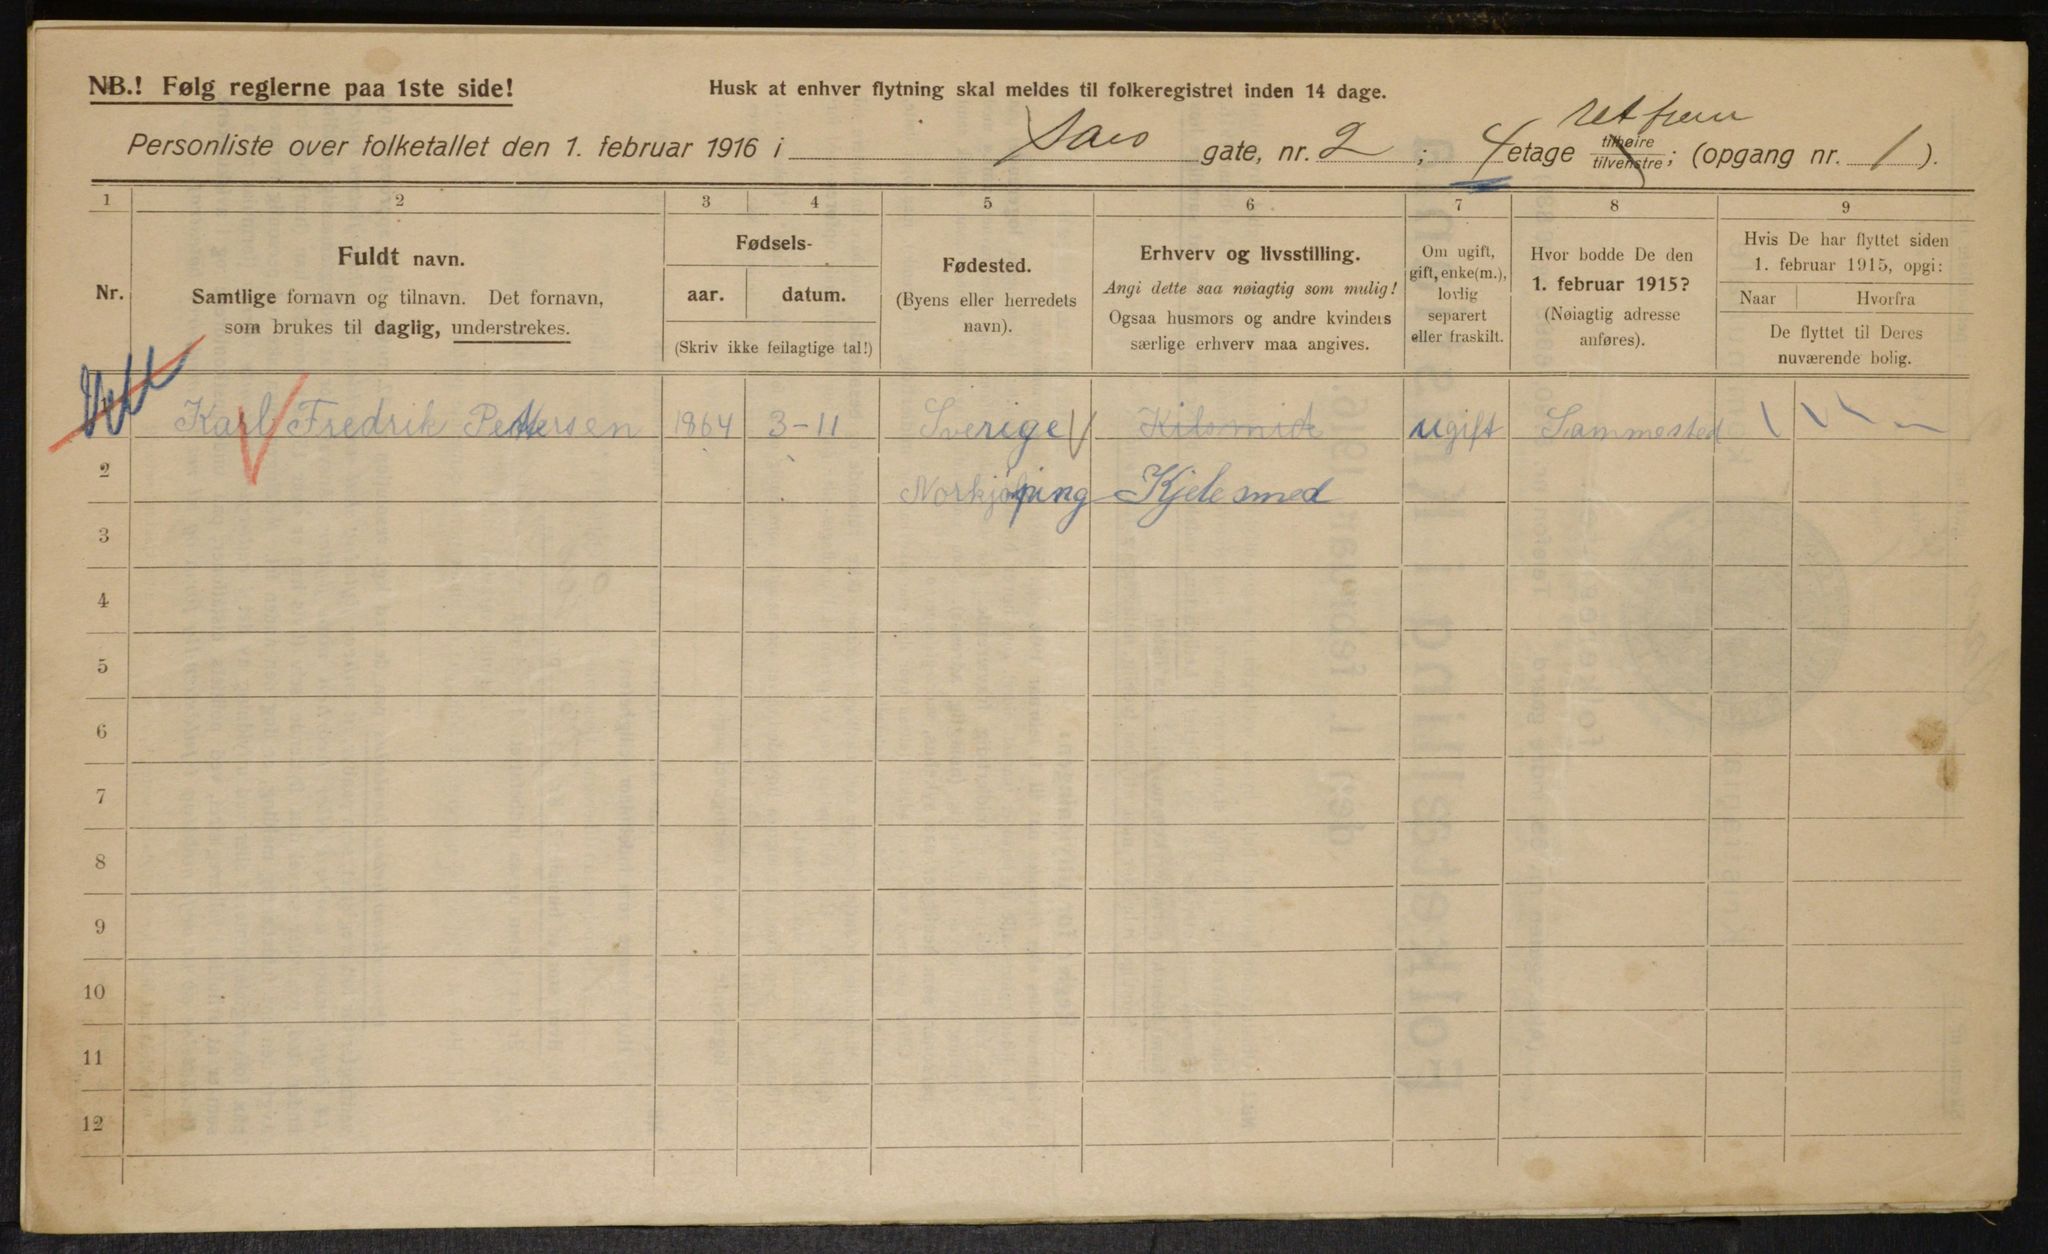 NB.! Følg reglerne paa 1ste side!
Husk at enhver flytning skal meldes til folkeregistret inden 14 dage.
Personliste over folketallet den 1. februar 1916 i Sars gate, nr. 2; 4 etage tilhøire tilvenstre; ret frem (opgang nr. 1).
1 2 3 4 5 6 7 8 9
Nr.
Fuldt navn.
Samtlige fornavn og tilnavn. Det fornavn,
som brukes til daglig, understrekes.
Fødsels-
aar. datum.
(Skriv ikke feilagtige tal!)
Fødested.
(Byens eller herredets
navn).
Erhverv og livsstilling.
Angi dette saa nøiagtig som mulig!
Ogsaa husmors og andre kvinders
særlige erhverv maa angives.
Om ugift,
gift, enke(m.),
lovlig
separert
eller fraskilt.
Hvor bodde De den
1. februar 1915?
(Nøiagtig adresse
anføres).
Hvis De har flyttet siden
1. februar 1915, opgi:
Naar Hvorfra
De flyttet til Deres
nuværende bolig.
1 Karl Fredrik Pettersen 1864 3-11 Sverige Kilsmidt ugift Sammested
2 Norkjøping Kjelesmed
3
4
5
6
7
8
9
10
11
12